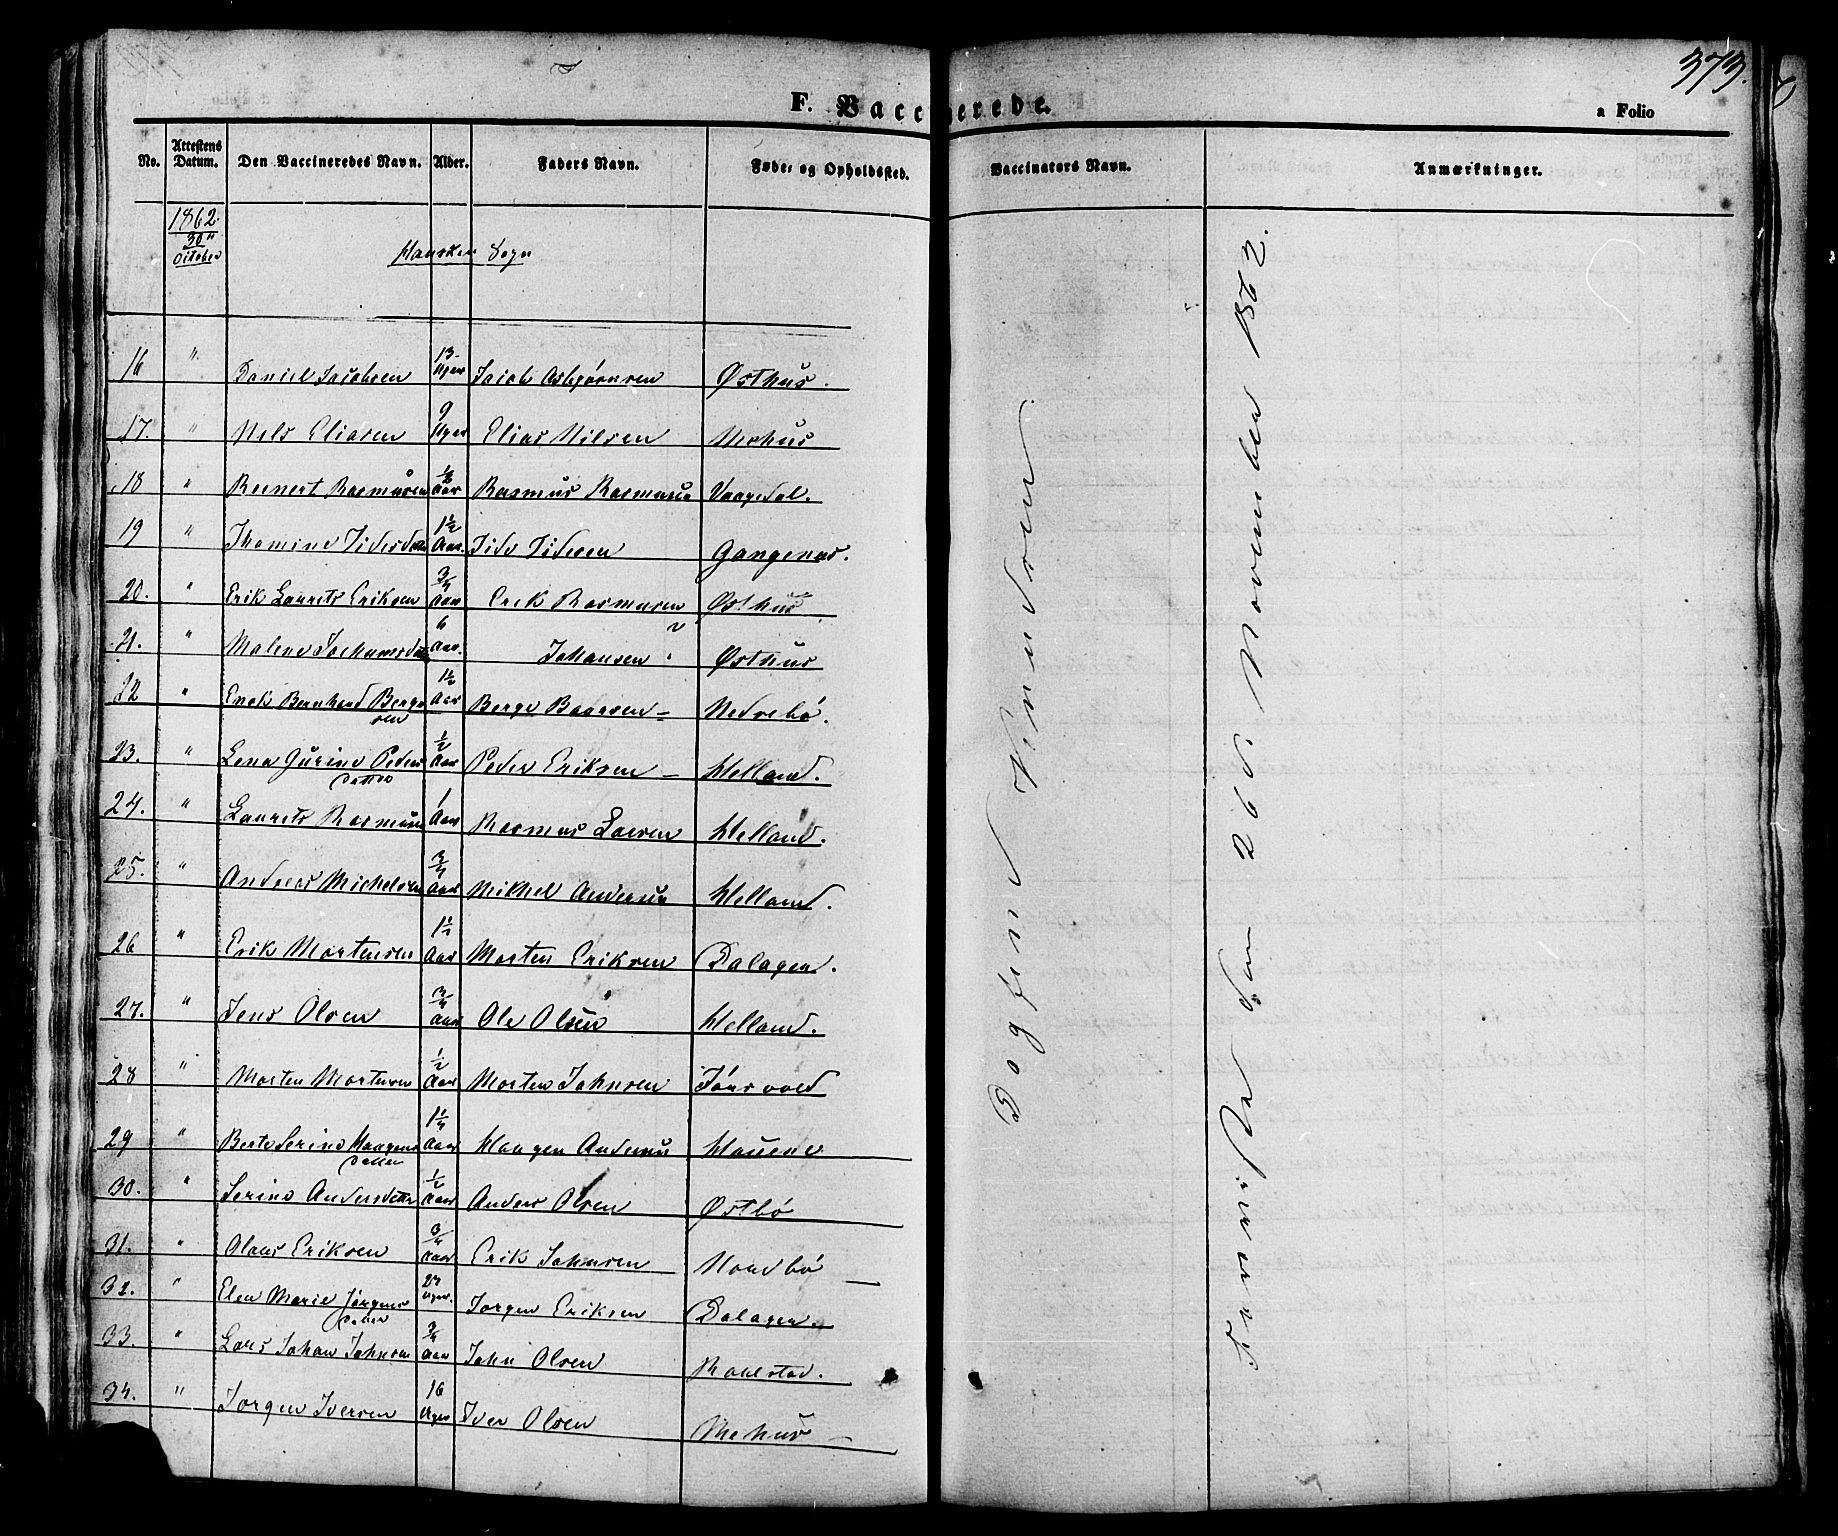 373.
F. Vaccinerede.
a Folio
No. Attestens Datum. Den Vaccineredes Navn. Alder. Faders Navn. Føde- og Opholdssted. Vaccinators Navn. Anmærkninger.
1862
30"
October
Hausken Sogn
16 " Daniel Jacobsen 13 Uger Jacob Asbjörnsen Østhus.
17. " Nels Eliasen 9 Uger Elias Nilsen Mehus
18 " Reinert Rasmusen 1/2 Aar Rasmus Rasmusen Vaagedal.
19 " Thomine Tidesdatter 1 1/2 Aar. Tide Tidesen Gangenæs.
20. " Erik Laurets Eriksen 3/4 Aar Erik Rasmusen Østhus
21. " Malene Jochumsdatter 6 Aar. Johansen Østhus
22 " Enok Bernhard Berge 1 1/2 Aar Berge Baarsen – Nedrebö.
sen
23. " Lena Gurine Peders 1/2 Aar Peder Eriksen – Helland.
datter
24. " Laurets Rasmusen 1 Aar Rasmus Larsen Helland.
25. " Andreas Michelsen 3/4 Aar Mikkel Andersen Helland.
26 " Erik Mortensen Aar Morten Eriksen Dalagen.
27. " Jens Olsen 3/4 Aar Ole Olsen Helland.
28 " Morten Mortensen 1/2 Aar Morten Johnsen Jönsvold
29 " Berte Serine Haagens 1 1/4 Aar Haagen Andersen Hauene
datter
30. " Serine Andersdatter 1/2 Aar Anders Olsen Østbö
31. " Olaus Eriksen 3/4 Aar Erik Johnsen Nordbö –
32. " Elen Marie Jörgens 27 Uger. Jorgen Eriksen Dalagen.
datter
33. " Lars Johan Johnsen 3/4 Aar John Olsen
34. " Jorgen Iversen 16 Uger Iver Olsen Mehus –
Dogfind
den 26de November 1862.